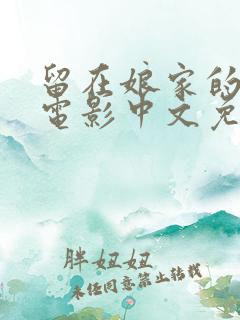 留在娘家的
電影中文免
胖妞妞
未经同意禁止转载